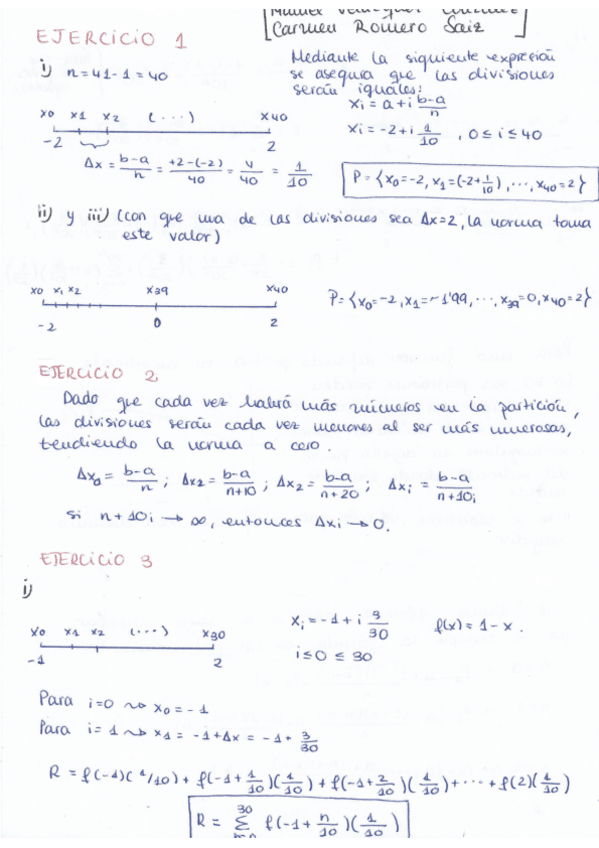 Carmen Romero Saiz
EJERCICIO 1
i) n=41-1=40
Mediante la siguiente expresión
se asegura que las divisiones
serán iguales:
xi = a+i b-a/n
xi = -2+i 1/10 , 0≤i≤40
x0 x1 x2 (···) x40
-2 2
Δx = b-a/n = +2-(-2)/40 = 4/40 = 1/10
P={x0=-2, x1=(-2+1/10), ···, x40=2}
ii) y iii) (con que una de las divisiones sea Δx=2, la norma toma
este valor)
x0 x1 x2 x39 x40
-2 0 2
P={x0=-2, x1=-1'99, ···, x39=0, x40=2}
EJERCICIO 2
Dado que cada vez habrá más números en la partición,
las divisiones serán cada vez menores al ser más numerosas,
tendiendo la norma a cero.
Δx0 = b-a/n ; Δx2 = b-a/n+10 ; Δx2 = b-a/n+20 ; Δxi = b-a/n+10i
Si n+10i → ∞, entonces Δxi → 0.
EJERCICIO 3
i)
xi = -1+i 3/30 f(x)=1-x.
i≤0≤30
x0 x1 x2 (···) x30
-1 2
Para i=0 ⇝ x0=-1
Para i=1 ⇝ x1 = -1+Δx = -1+ 3/30
R = f(-1)(1/10) + f(-1+1/10)(1/10) + f(-1+2/10)(1/10) + ··· + f(2)(1/10)
R = Σ 30 f(-1+n/10)(1/10)